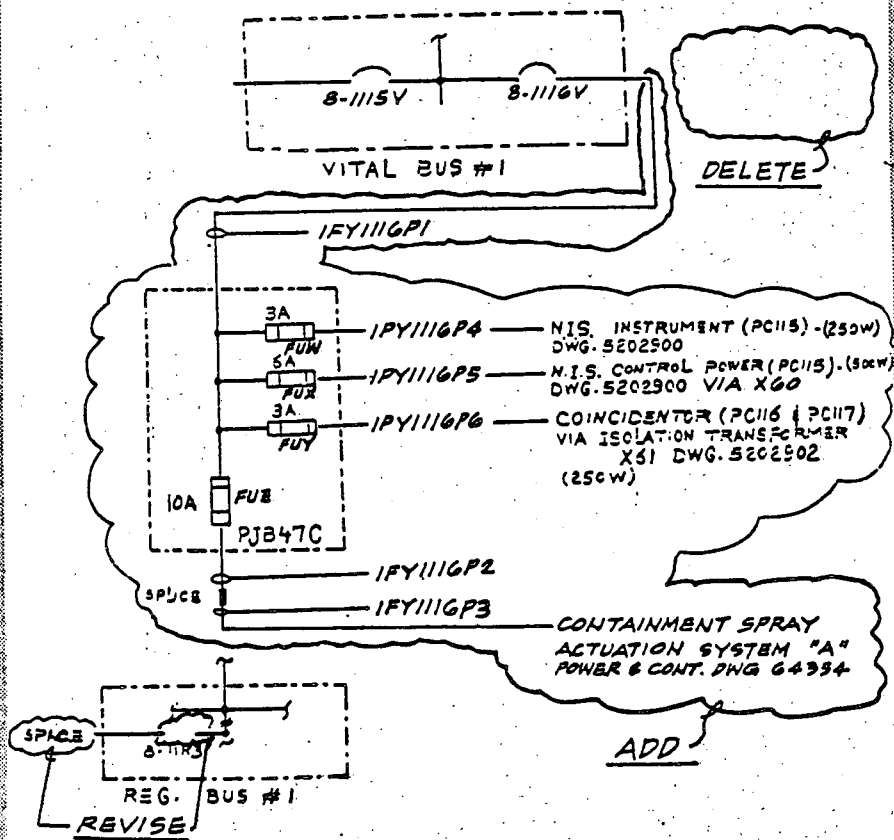 8-1115V
8-1116V
VITAL BUS #1
DELETE
1FY1116P1
3A
FUW
1PY1116P4
N.I.S. INSTRUMENT (PC115)-(250W)
DWG. 5202900
FUX
1PY1116P5
N.I.S. CONTROL POWER (PC115)-(500W)
DWG. 5202900 VIA X60
3A
FUY
1PY1116P6
COINCIDENTOR (PC116 & PC117)
VIA ISOLATION TRANSFORMER
X61 DWG. 5202902
(250W)
10A
FUZ
PJB47C
1FY1116P2
SPLICE
1FY1116P3
CONTAINMENT SPRAY
ACTUATION SYSTEM "A"
POWER & CONT. DWG 64394
SPLICE
REG. BUS #1
ADD
REVISE